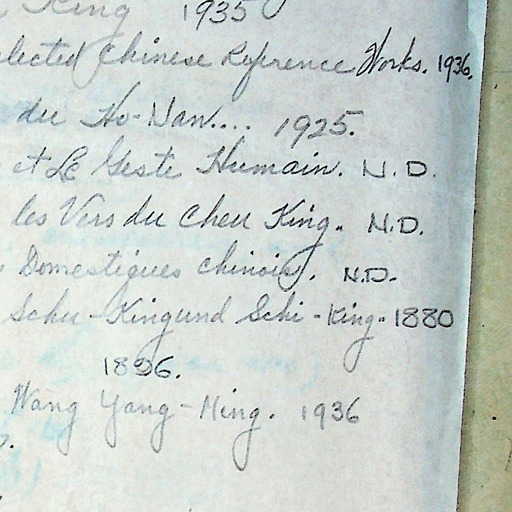 King 1935
lected Chinese Reference Works. 1936.
du Ho-Nan... 1925.
et Le Geste Humain. N.D.
les Vers du Cheu King. N.D.
Domestiques chinois. N.D.
Schu-Kingund Schi-King. 1880
1896.
Wang Yang-Ming. 1936